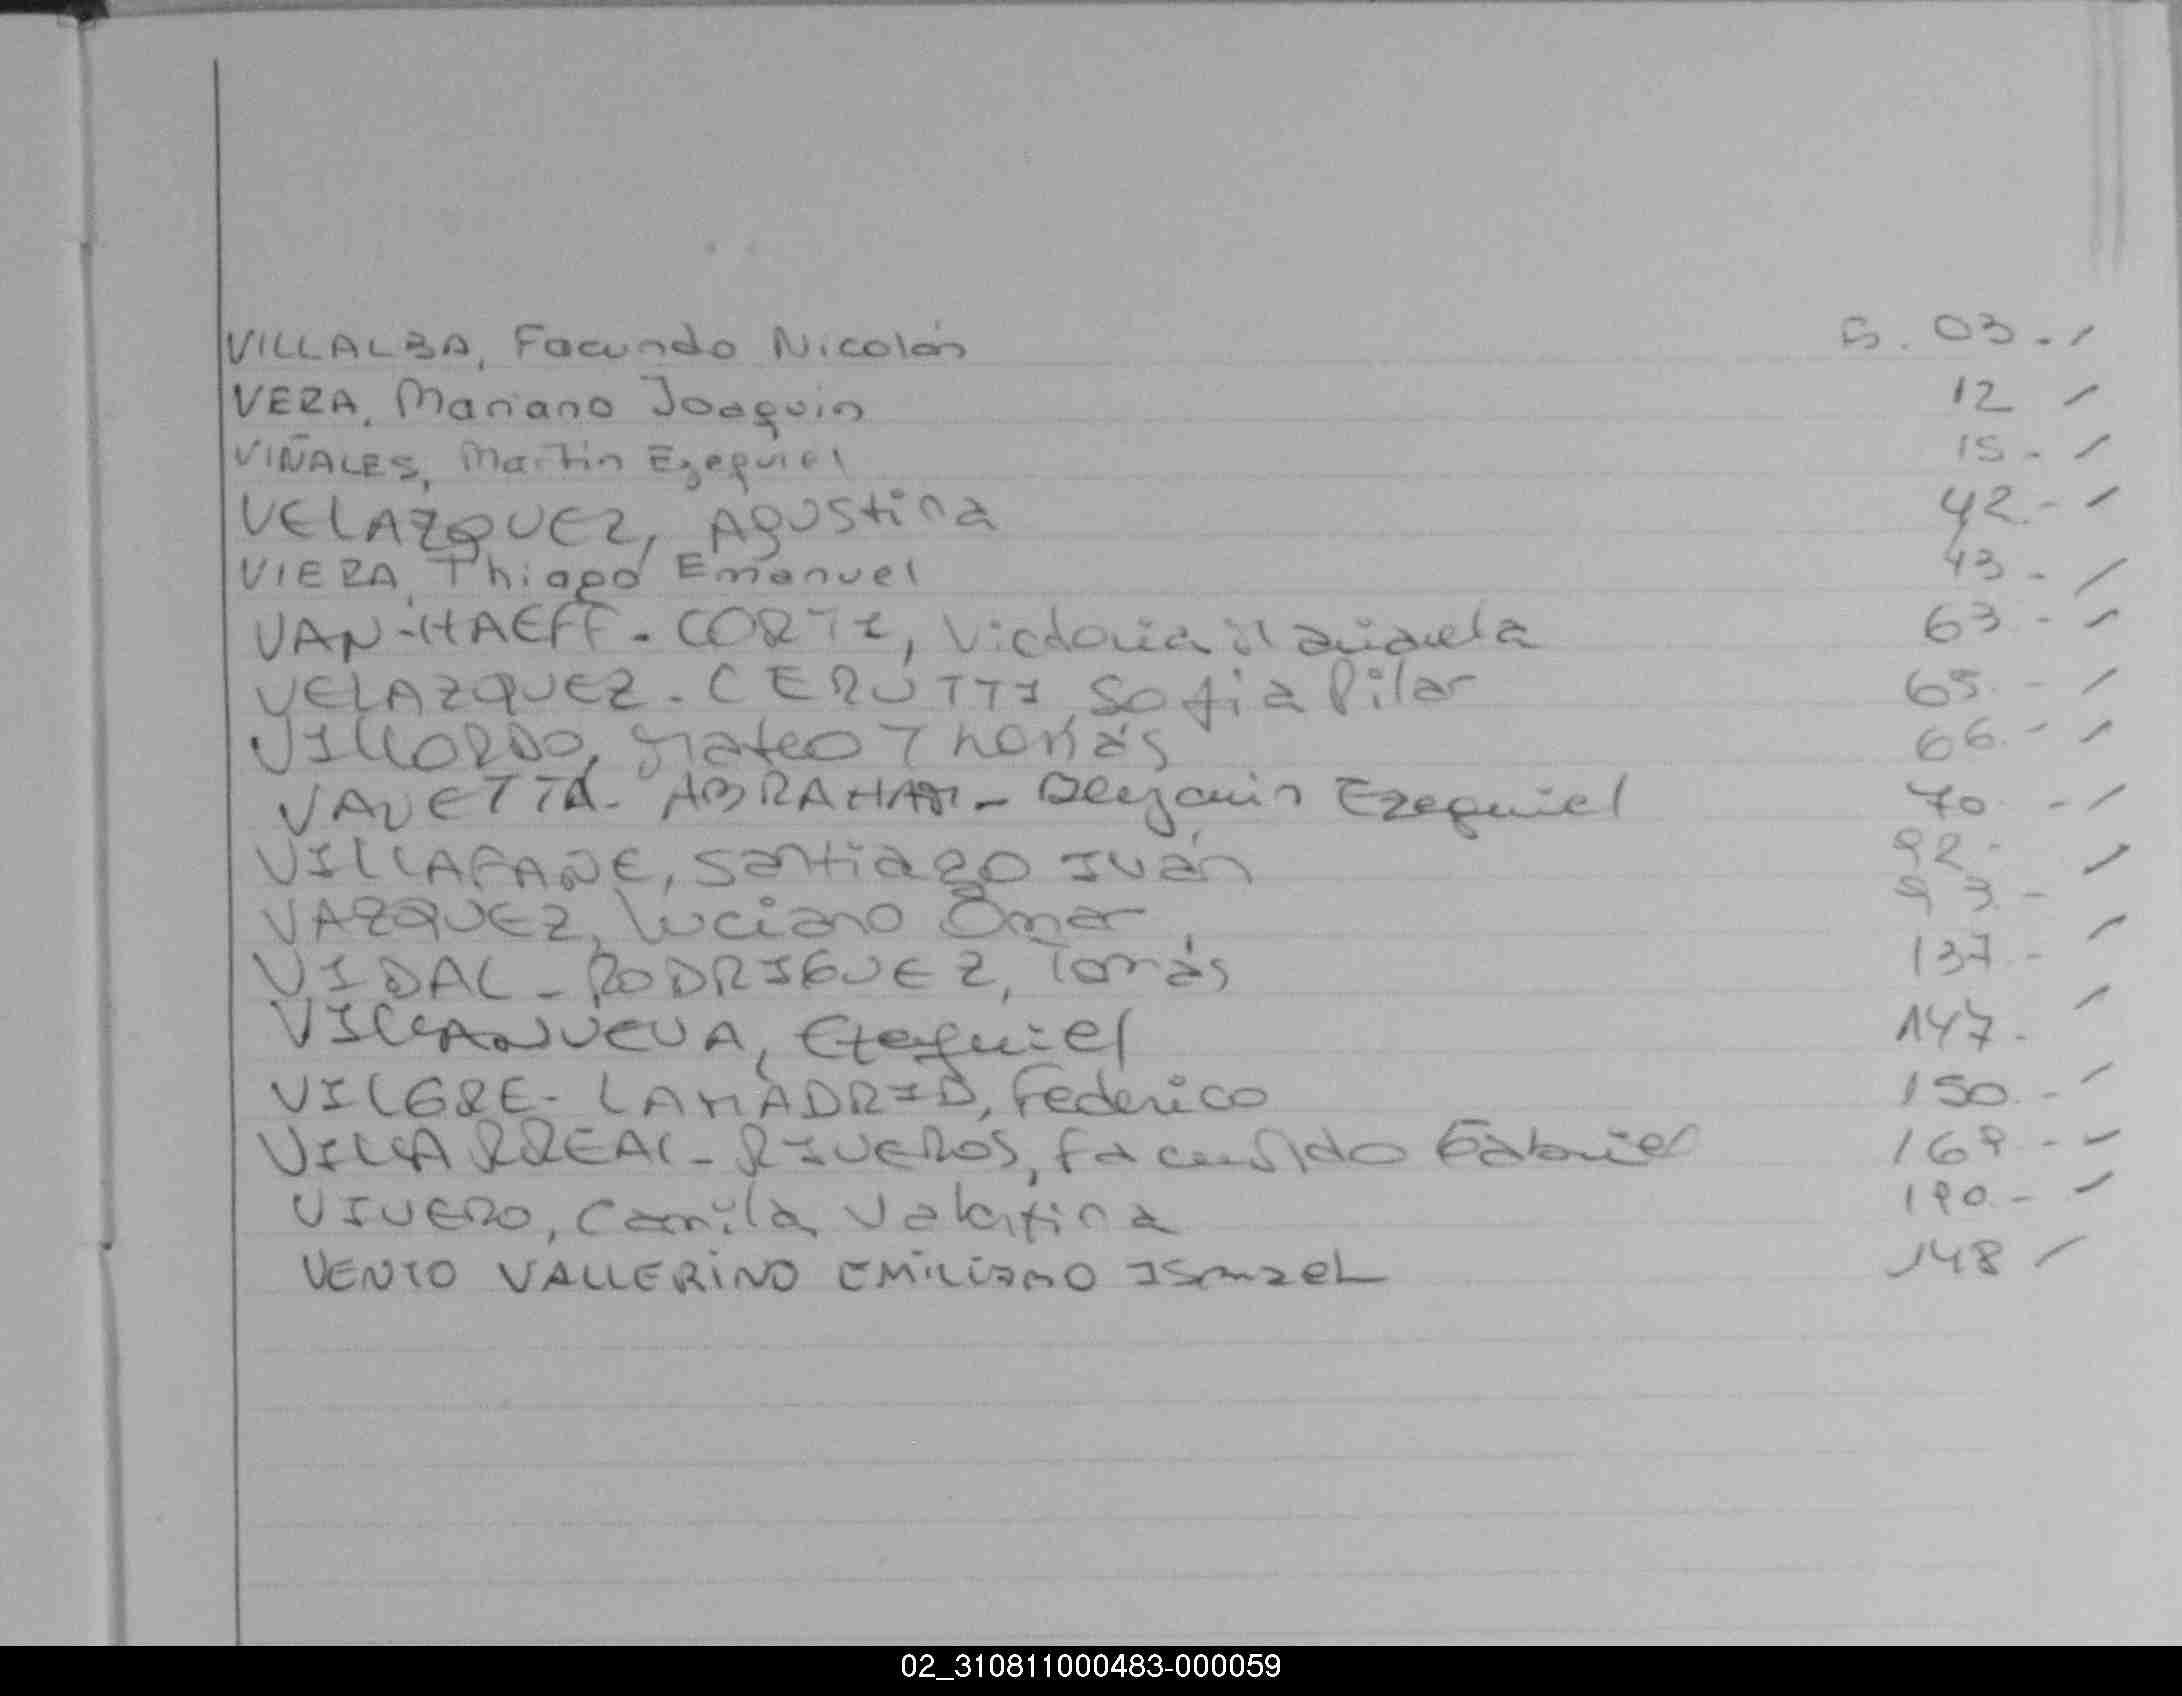 VILLALBA, Facundo Nicolás 03.-
VERA, Mariano Joaquin 12
VIÑALES, Martin Ezequiel 15.-
VELAZQUEZ, Agustina 42.-
VIERA, Thiago Emanuel 43.-
VAN-HAEFF-CORTI, Victoria Mariela 63.-
VELAZQUEZ-CERUTTI, Sofia Pilar 65.-
VILLORDO, Mateo Thomás 66.-
VAVETTA-ABRAHAM-Benjamin Ezequiel 70.-
VILLAFAÑE, Santiago Iván 92.-
VAZQUEZ, Luciano Omar 93.-
VIDAL-RODRIGUEZ, Tomás 137.-
VILLANUEVA, Ezequiel 147.-
VILGRE-LAMADRID, Federico 150.-
VILLARREAL-RIVEROS, Facundo Gabriel 169.-
VIVERO, Camila Valentina 190.-
VENTO VALLERINO EMILIANO ISMAEL 148
02_310811000483-000059